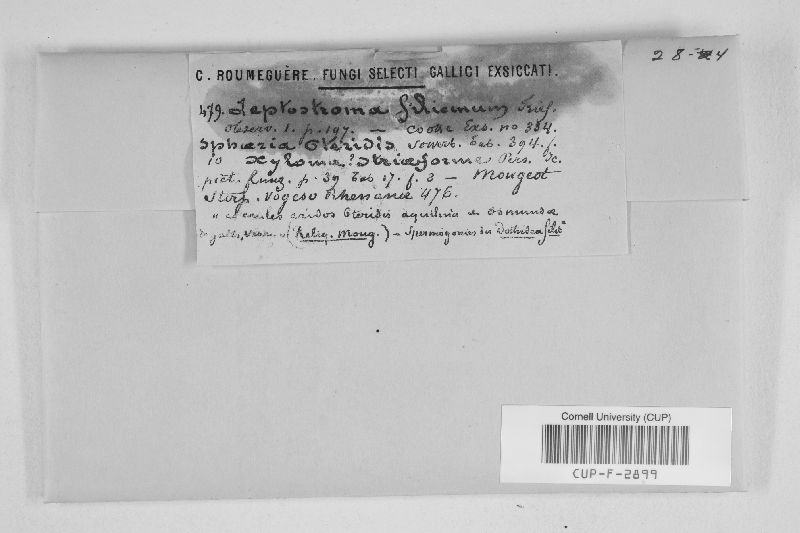 28-4
C. ROUMEGUÈRE. FUNGI SELECTI GALLICI EXSICCATI.
479. Leptostroma filicinum Fries.
Observ. 1. p. 197. — Cooke Exs. no 354.
Sphæria Pteridis Sowerb. tab. 394. f.
10 Xyloma? striæforme Pers. Ic.
pict. fung. p. 39 tab 17. f. 3 — Mougeot
Stirp. Vogeso Rhenanæ 476.
" ad caules aridos Pteridis aquilina et Osmundæ
(Reliq. Moug.) — Spermogonies du Dothidea
Cornell University (CUP)
CUP-F-2899